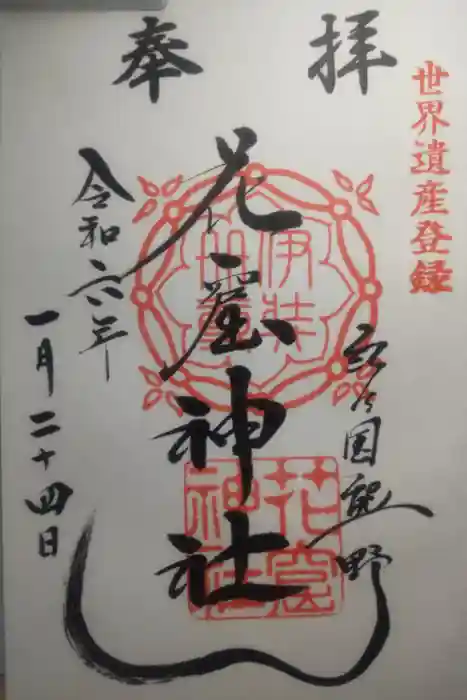 奉拝
世界遺産登録
国熊野
花窟神社
令和六年
一月二十四日
伊弉
冊尊
花窟
神社